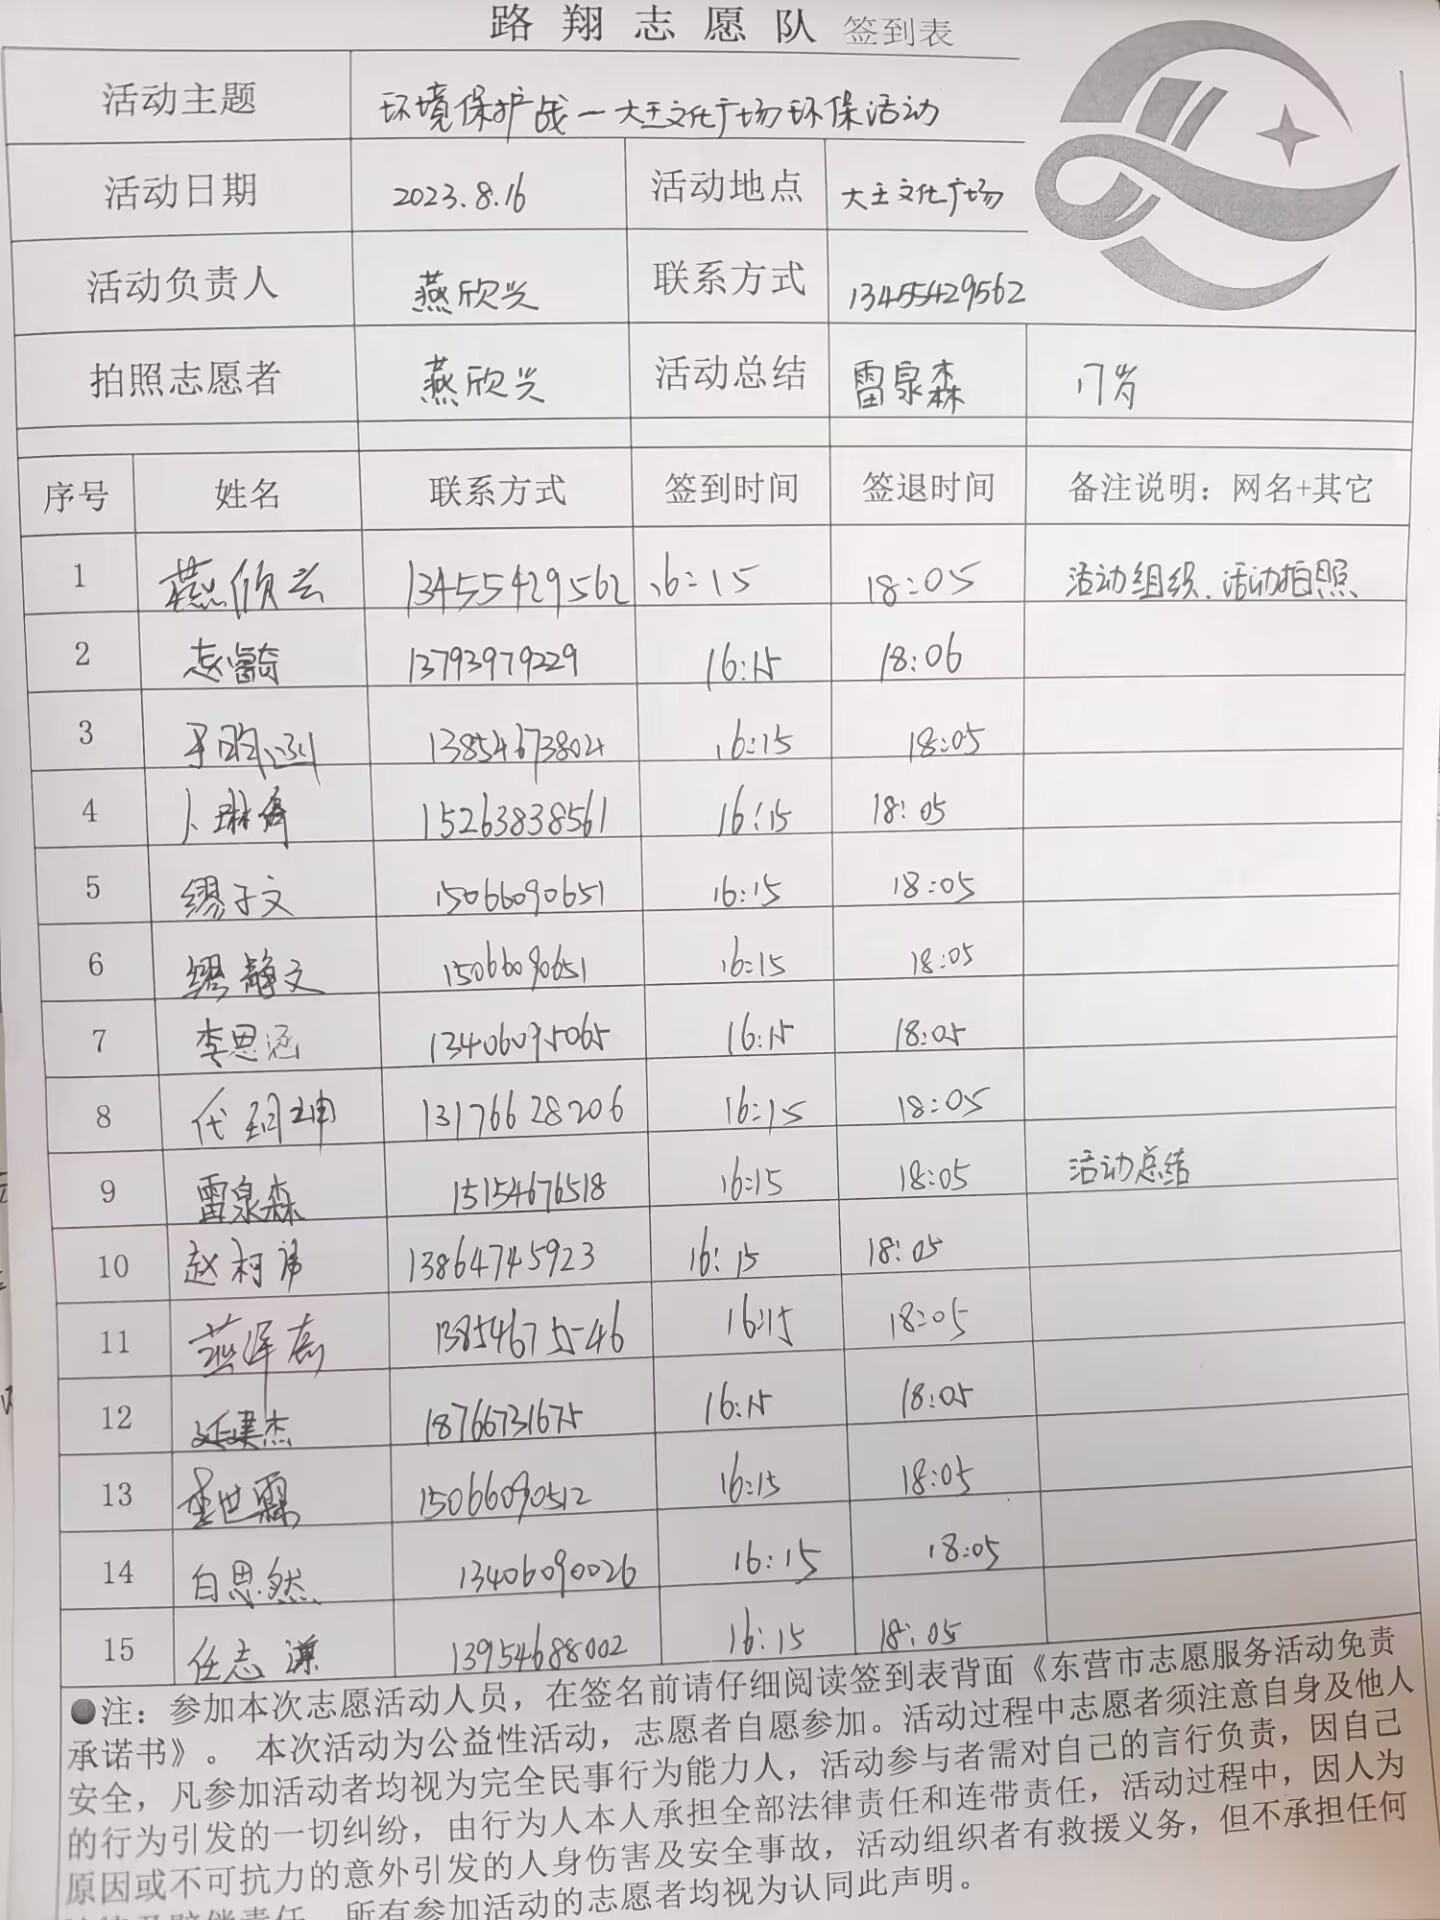 路翔志愿队 签到表
活动主题 环境保护战—大王文化广场环保活动
活动日期 2023.8.16 活动地点 大王文化广场
活动负责人 燕欣兴 联系方式 13455429562
拍照志愿者 燕欣兴 活动总结 雷泉森 17岁
序号 姓名 联系方式 签到时间 签退时间 备注说明：网名+其它
1 燕欣兴 13455429562 16:15 18:05 活动组织、活动拍照
2 13793979229 16:15 18:06
3 13854673802 16:15 18:05
4 15263838561 16:15 18:05
5 缪子文 15066090651 16:15 18:05
6 缪静文 15066090651 16:15 18:05
7 李思涵 13406095065 16:15 18:05
8 代珂珅 13176628206 16:15 18:05
9 雷泉森 15154676518 16:15 18:05 活动总结
10 赵柯 13864745923 16:15 18:05
11 燕 16:15 18:05
12 延建杰 18766731675 16:15 18:05
13 李世霖 15066090512 16:15 18:05
14 白思然 13406090026 16:15 18:05
15 任志谦 13954688002 16:15 18:05
●注：参加本次志愿活动人员，在签名前请仔细阅读签到表背面《东营市志愿服务活动免责
承诺书》。 本次活动为公益性活动，志愿者自愿参加。活动过程中志愿者须注意自身及他人
安全，凡参加活动者均视为完全民事行为能力人，活动参与者需对自己的言行负责，因自己
的行为引发的一切纠纷，由行为人本人承担全部法律责任和连带责任，活动过程中，因人为
原因或不可抗力的意外引发的人身伤害及安全事故，活动组织者有救援义务，但不承担任何
所有参加活动的志愿者均视为认同此声明。